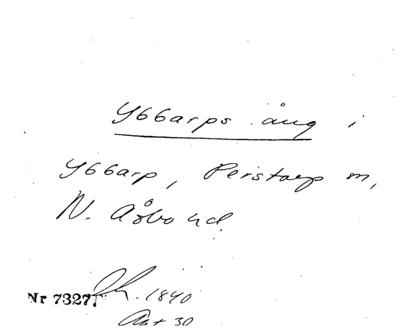 Ybbarps äng i
Ybbarp, Perstorp m,
N. Åsbo hd.
Nr 7327
1840
Akt 30